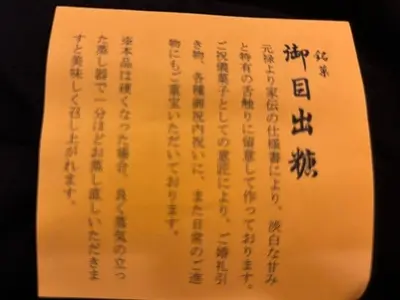 銘菓
御目出糖
元禄より家伝の仕様書により、淡白な甘み
と特有の舌触りに留意して作っております。
ご祝儀菓子としての重詰により、ご婚礼引
き物、各種御祝内祝いに、また日常のご進
物にもご重宝いただいております。
本品は硬くなった場合、良く蒸気の立っ
た蒸し器で一分ほどお蒸し直しいただきま
すと美味しく召し上がれます。